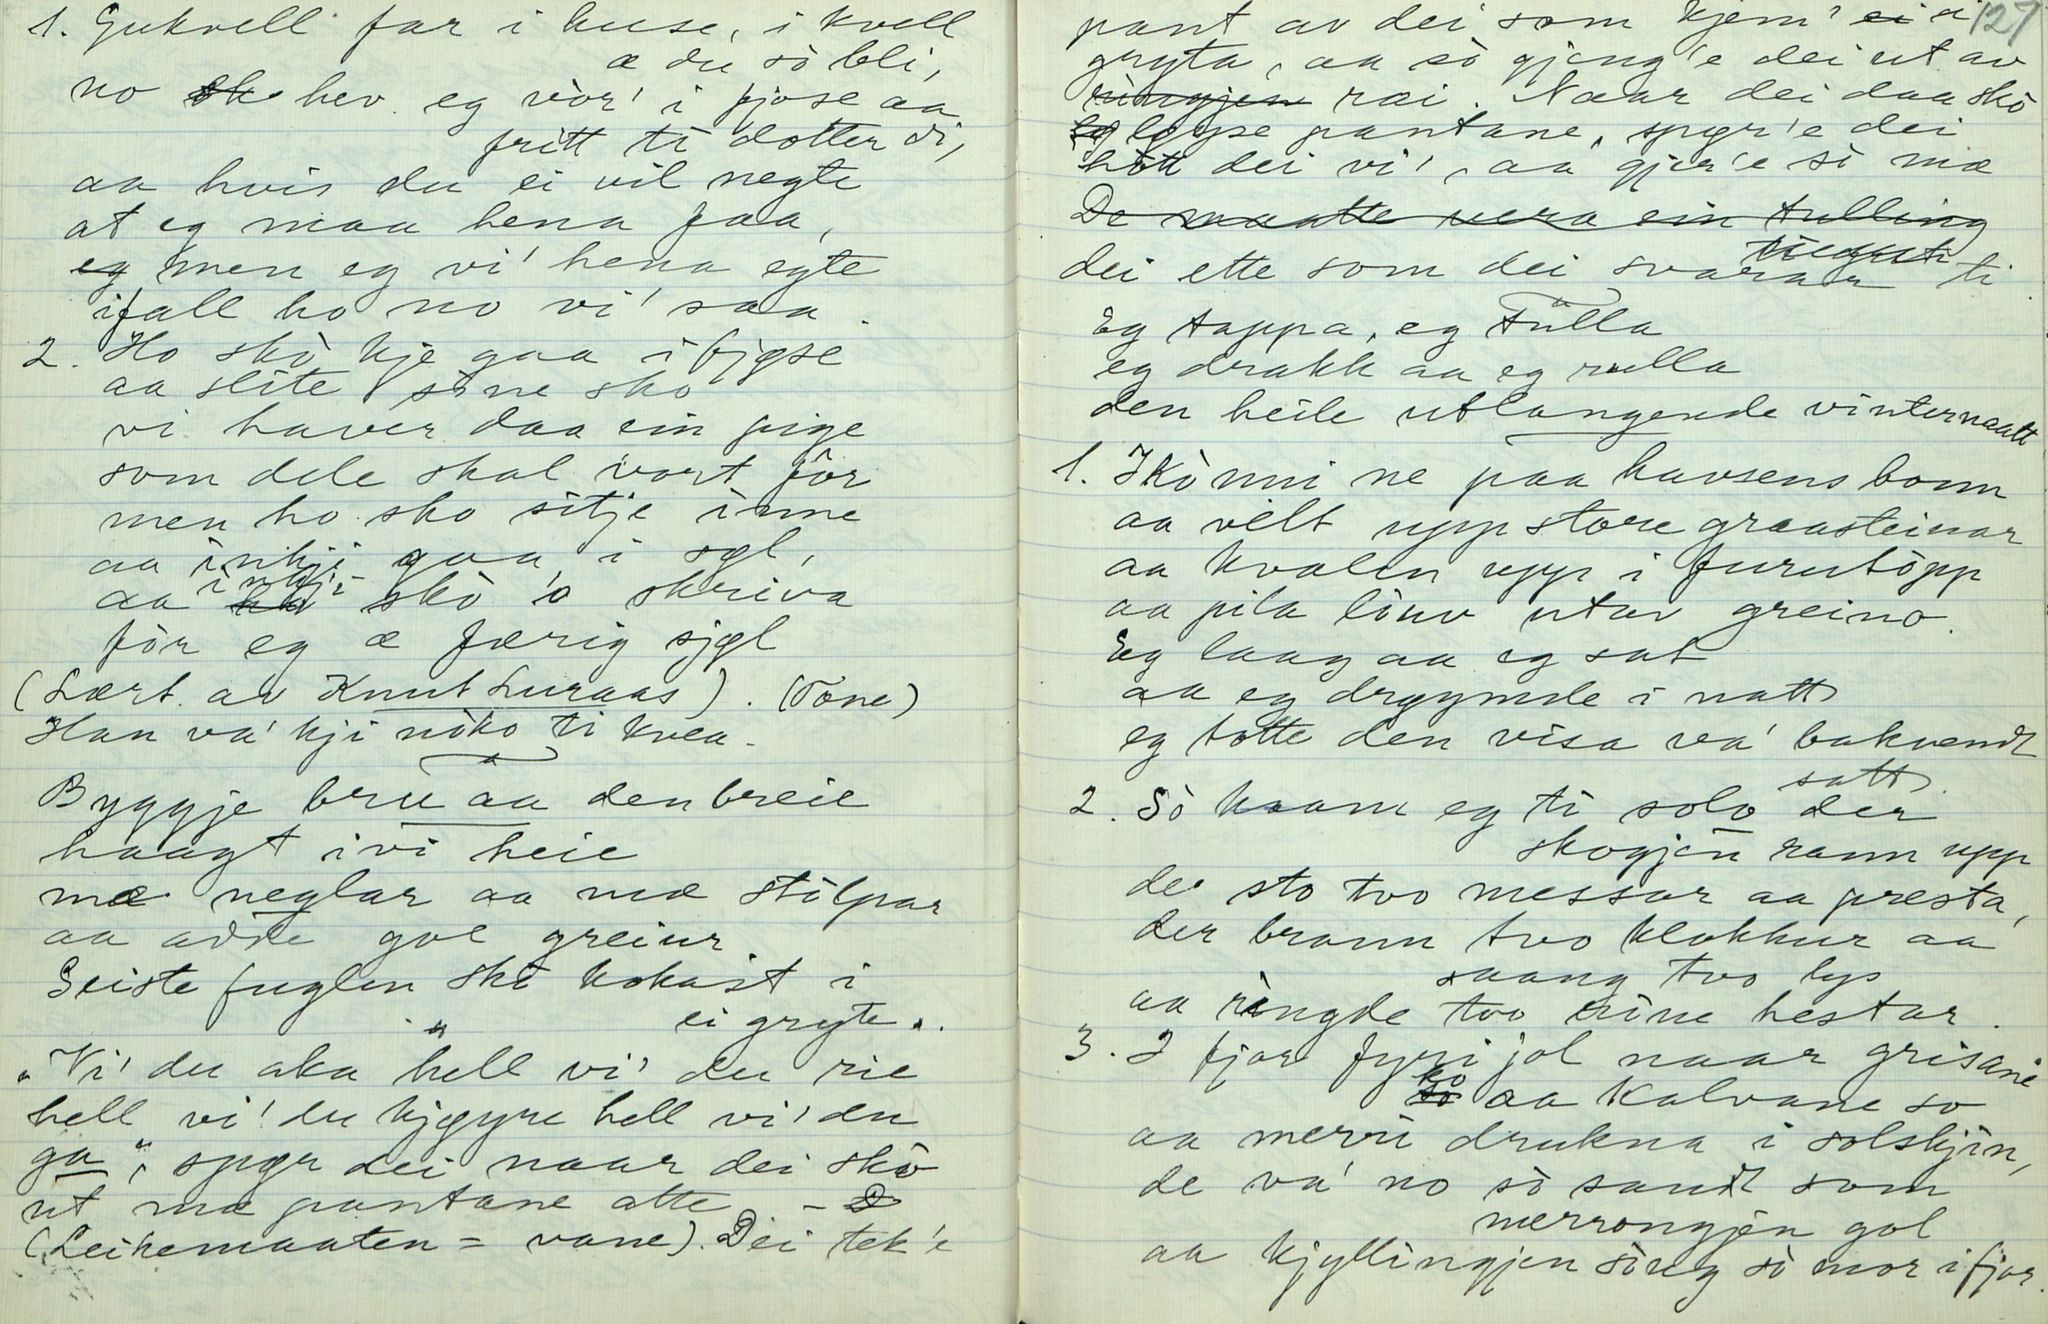 1. Gukvell far i huse, i kvell
æ du sò bli,
no hev eg vòr' i fjose aa
fritt ti dotter di,
aa hvis du ei vil negte
at eg maa hena faa,
eg men eg vi' hena egte
ifall ho no vi' saa.
2. Ho skò kje gaa i fjøse
aa slite sine sko
vi haver daa ein pige
som dele skal vort fôr
men ho sko sitje inne
aa inkji gaa i søl,
aa inkji skò 'o skriva
fòr eg æ færig sjøl
(Lært av Knut Luraas). (Tone)
Han va' kji nòko ti kvea.
Byggje bru aa den breie
haagt ivi heie
mæ neglar aa mæ stòlpar
aa adde gol greinr
Geiste fuglen skò kokast i
ei gryte.
"Vi' du aka hell vi' du rie
hell vi' du kjøyre hell vi' du
ga", spør dei naar dei skò
ut mæ pantane atte –
(Leikemaaten = vane). Dei tek'e
127
pant av dei som kjem' ei i
gryta, aa sò gjeng'e dei ut av
ringjen rai. Naar dei daa skò
løyse pantane, spør'e dei
hòtt dei vi', aa gjer'e sò mæ
De maatte vera ein tulling
dei ette som dei svarar ti
Eg tappa, eg fulla
eg drakk aa eg rulla
den heile utlangende vinternaatt
1. Ikònni ne paa havsens bonn
aa velt upp store graasteinar
aa kvalen upp i furutòpp
aa pila lòuv utav greino.
Eg laag aa eg sat
aa eg drøymde i natt
eg totte den visa va' bakvendt
satt.
2. Sò kaam eg ti solo der
skogjen rann upp
der sto tvo messur aa presta,
der brann tvo klokkur aa
saang tvo lys
aa ringde tvo rine hestar.
3. I fjor fyri jol naar grisane
ko aa kalvane so
aa merri drukna i solskjin,
de va' no sò sandt som
merrongjen gol
aa kjyllingjen sòug sò mor i fjor.